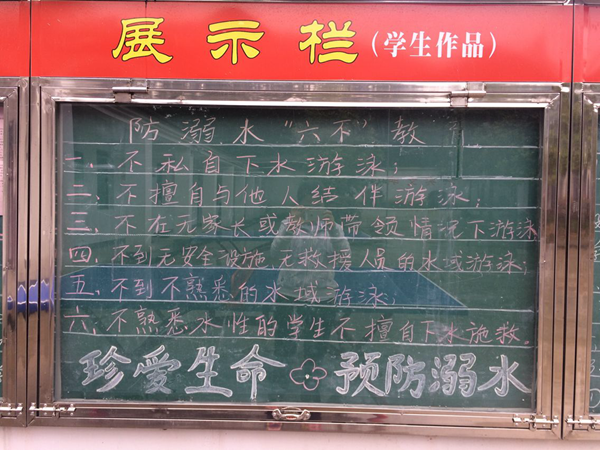 展示栏(学生作品)
防溺水"六不"教
一、不私自下水游泳;
二、不擅自与他人结伴游泳;
三、不在无家长或教师带领情况下游泳
四、不到无安全设施、无救援人员的水域游泳;
五、不到不熟悉的水域游泳;
六、不熟悉水性的学生不擅自下水施救。
珍爱生命 预防溺水